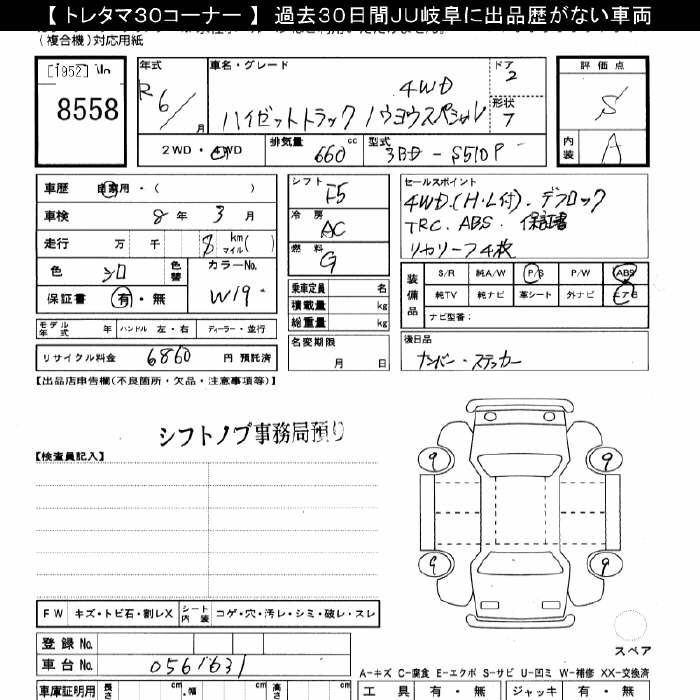 【 トレタマ30コーナー 】 過去30日間JU岐阜に出品歴がない車両
(複合機)対応用紙
[1952]
8558
年式
R6/
月
車名・グレード
4WD
ハイゼットトラック ノウヨウスペシャル
ドア
2
形状
7
2WD・4WD
排気量
660 cc
型式
3BD - S510P
評価点
S
内装
A
車歴 自家用・( )
車検 8 年 3 月
走行 万 千 8 km マイル ( )
色 シロ 色替
カラーNo.
W19
保証書 有・無
モデル年式 年 ハンドル 左・右 ディーラー・並行
リサイクル料金 6860 円 預託済
シフト F5
冷房 AC
燃料 G
乗車定員 名
積載量 kg
総重量 kg
名変期限
月 日
セールスポイント
4WD.(H・L付)・デフロック
TRC. ABS. 保証書
リヤリーフ4枚
装備品
S/R 純A/W P/S P/W ABS
純TV 純ナビ 革シート 外ナビ エアB
ナビ型番:
後日品
ナンバー・ステッカー
【出品店申告欄(不良箇所・欠品・注意事項等)】
シフトノブ事務局預り
【検査員記入】
9
9
9
9
スペア
FW キズ・トビ石・割レX シート内装 コゲ・穴・汚レ・シミ・破レ・スレ
登録 No.
車台 No. 0561631
A-キズ C-腐食 E-エクボ S-サビ U-凹ミ W-補修 XX-交換済
車庫証明用 長さ cm 幅 cm 高さ cm
工具 有・無 ジャッキ 有・無